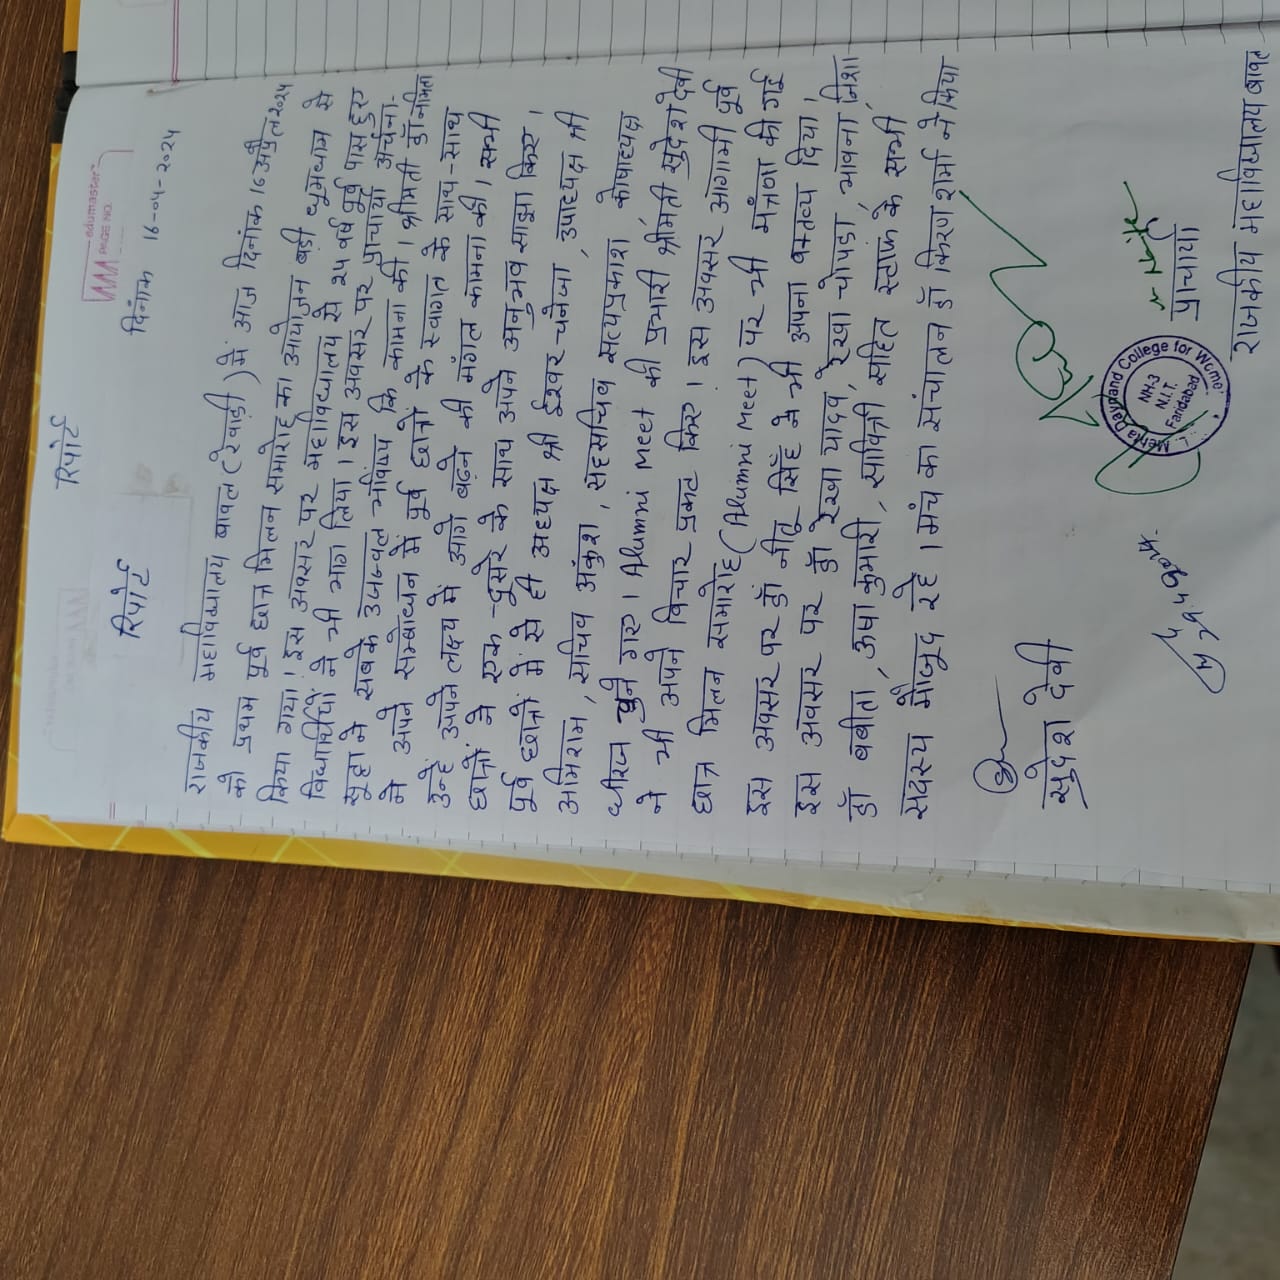 रिपोर्ट
edumaster
PAGE NO.
रिपोर्ट
दिनांक 16-04-2024
राजकीय महाविद्यालय बावल (रेवाड़ी) में आज दिनांक 16 अप्रैल 2024
को प्रथम पूर्व छात्र मिलन समारोह का आयोजन बड़ी धूमधाम से
किया गया। इस अवसर पर महाविद्यालय से 24 वर्ष पूर्व पास हुए
विद्यार्थियों ने भी भाग लिया। इस अवसर पर प्राचार्या अर्चना
सुहा ने सबके उज्ज्वल भविष्य कि कामना की। श्रीमती डॉ नमिता
ने अपने सम्बोधन में पूर्व छात्रों के स्वागत के साथ-साथ
उन्हें अपने लक्ष्य में आगे बढ़ने की मंगल कामना की। सभी
छात्रों ने एक-दूसरे के साथ अपने अनुभव साझा किए।
पूर्व छात्रों में से ही अध्यक्ष श्री ईश्वर चनेजा, उपाध्यक्ष श्री
अभिराम, सचिव अंकुश, सहसचिव सत्यप्रकाश कोषाध्यक्ष
धीरज चुने गए। Alumni Meet की प्रभारी श्रीमती सुदेश देवी
ने भी अपने विचार प्रकट किए। इस अवसर आगामी पूर्व
छात्र मिलन समारोह (Alumni Meet) पर भी मंत्रणा की गई
इस अवसर पर डॉ नीतू सिंह ने भी अपना वक्तव्य दिया।
इस अवसर पर डॉ रेखा यादव, रेखा चोपड़ा, भावना, निशा
डॉ बबीता, ऊषा कुमारी, सावित्री सहित स्टाफ के सभी
सदस्य मौजूद रहे। मंच का संचालन डॉ किरण शर्मा ने किया
सुदेश देवी
Mehta Dayanand College for Women
NH-3
N.I.T.
Faridabad
प्राचार्या
राजकीय महाविद्यालय बावल